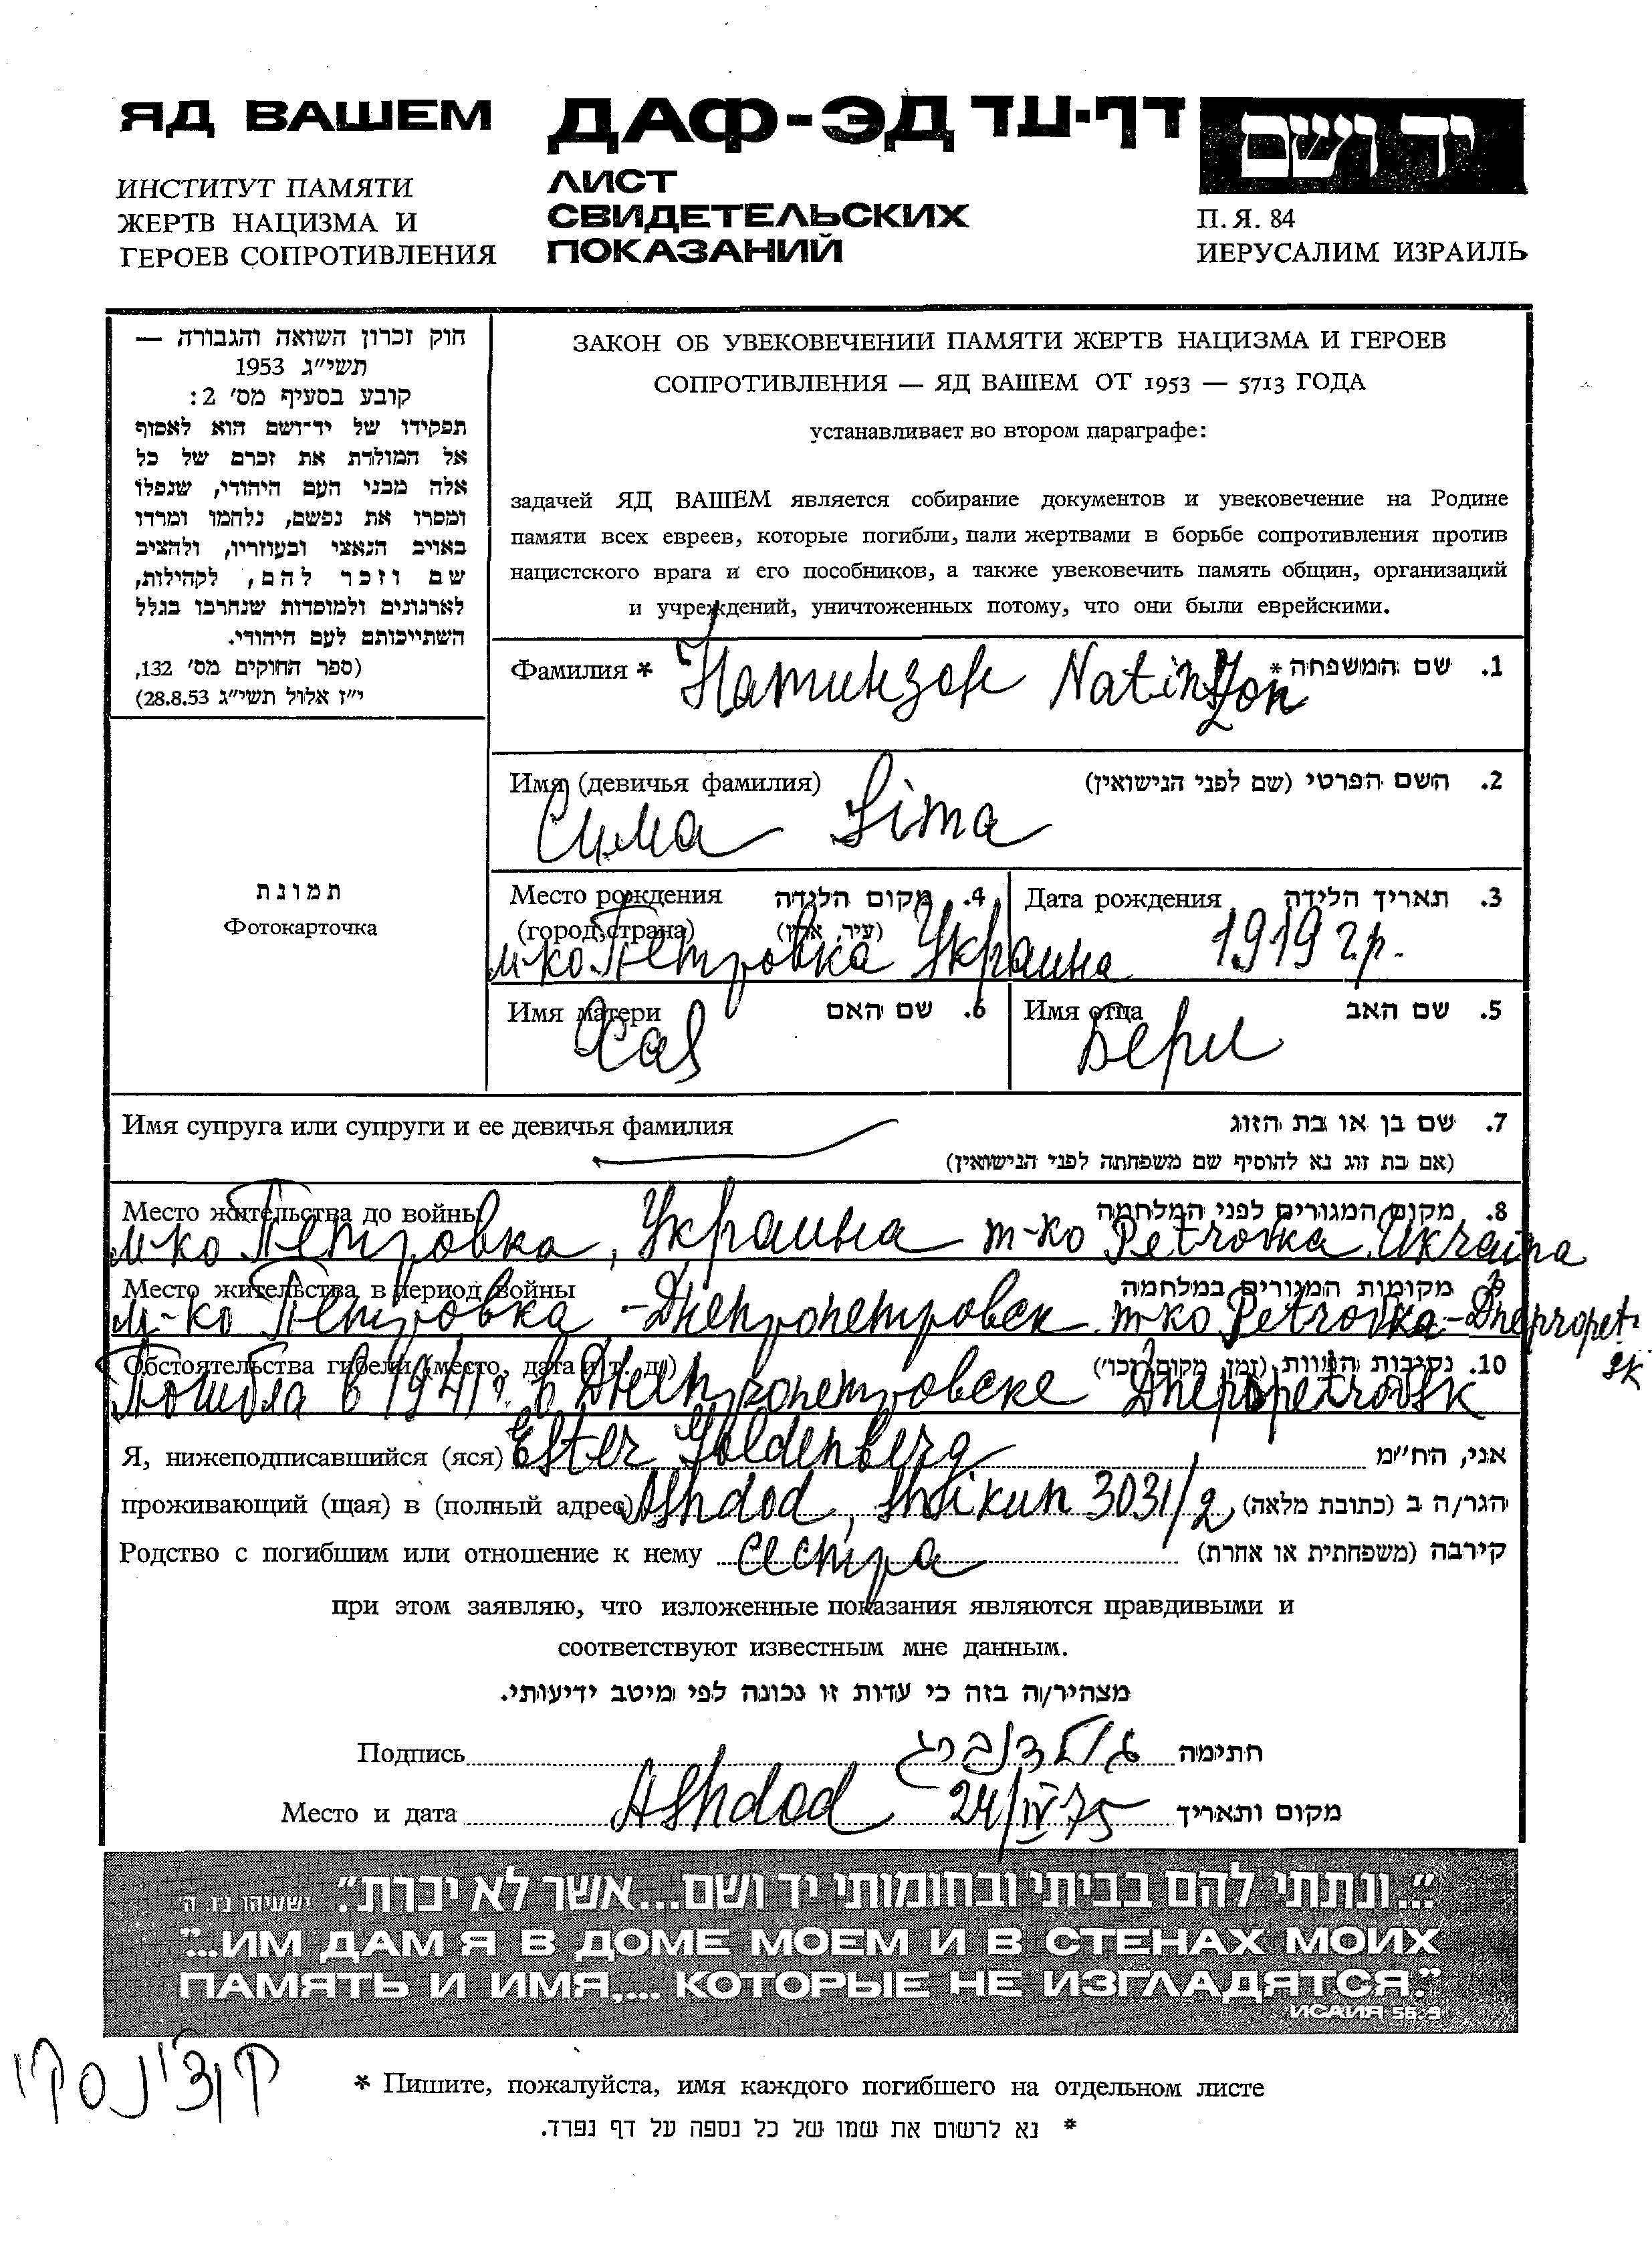 ЯД ВАШЕМ
ИНСТИТУТ ПАМЯТИ
ЖЕРТВ НАЦИЗМА И
ГЕРОЕВ СОПРОТИВЛЕНИЯ
ДАФ-ЭД דף-עד
ЛИСТ
СВИДЕТЕЛЬСКИХ
ПОКАЗАНИЙ
יד ושם
П. Я. 84
ИЕРУСАЛИМ ИЗРАИЛЬ
חוק זכרון השואה והגבורה —
תשי״ג 1953
קובע בסעיף מס׳ 2:
תפקידו של יד־ושם הוא לאסוף
אל המולדת את זכרם של כל
אלה מבני העם היהודי, שנפלו
ומסרו את נפשם, נלחמו ומרדו
באויב הנאצי ובעוזריו, ולהציב
שם וזכר להם, לקהילות,
לארגונים ולמוסדות שנחרבו בגלל
השתייכותם לעם היהודי.
(ספר החוקים מס׳ 132,
י״ז אלול תשי״ג 28.8.53)
ЗАКОН ОБ УВЕКОВЕЧЕНИИ ПАМЯТИ ЖЕРТВ НАЦИЗМА И ГЕРОЕВ
СОПРОТИВЛЕНИЯ — ЯД ВАШЕМ ОТ 1953 — 5713 ГОДА
устанавливает во втором параграфе:
задачей ЯД ВАШЕМ является собирание документов и увековечение на Родине
памяти всех евреев, которые погибли, пали жертвами в борьбе сопротивления против
нацистского врага и его пособников, а также увековечить память общин, организаций
и учреждений, уничтоженных потому, что они были еврейскими.
Фамилия * Натинзон Natinzon 1. שם המשפחה *
Имя (девичья фамилия) 2. השם הפרטי (שם לפני הנישואין)
Сима Sima
תמונת
Фотокарточка
Место рождения 4. מקום הלידה
(город, страна) (עיר, ארץ)
м-ко Петровка Украина
Дата рождения 3. תאריך הלידה
1919 г.р.
Имя матери 6. שם האם
Хая
Имя отца 5. שם האב
Бери
Имя супруга или супруги и ее девичья фамилия 7. שם בן או בת הזוג
(אם בת זוג נא להוסיף שם משפחתה לפני הנישואין)
Место жительства до войны 8. מקום המגורים לפני המלחמה
м-ко Петровка, Украина m-ko Petrovka Ukraina
Место жительства в период войны 9. מקומות המגורים במלחמה
м-ко Петровка - Днепропетровск m-ko Petrovka - Dnepropet-
sk
Обстоятельства гибели (место, дата и т. д.) 10. נסיבות המוות (זמן, מקום וכו׳)
Погибла в 1941 г. в Днепропетровске Dnepropetrovsk
Я, нижеподписавшийся (яся) Ester Goldenberg אני, הח״מ
проживающий (щая) в (полный адрес) Ashdod, Shikun 3031/2 הגר/ה ב (כתובת מלאה)
Родство с погибшим или отношение к нему сестра קירבה (משפחתית או אחרת)
при этом заявляю, что изложенные показания являются правдивыми и
соответствуют известным мне данным.
מצהיר/ה בזה כי עדות זו נכונה לפי מיטב ידיעותי.
Подпись גולדנברג חתימה
Место и дата Ashdod 24/IV 75 מקום ותאריך
"...ונתתי להם בביתי ובחומותי יד ושם...אשר לא יכרת". ישעיהו נ״ו ה׳
"...ИМ ДАМ Я В ДОМЕ МОЕМ И В СТЕНАХ МОИХ
ПАМЯТЬ И ИМЯ,... КОТОРЫЕ НЕ ИЗГЛАДЯТСЯ."
ИСАИЯ 56.5
* Пишите, пожалуйста, имя каждого погибшего на отдельном листе
* נא לרשום את שמו של כל נספה על דף נפרד.